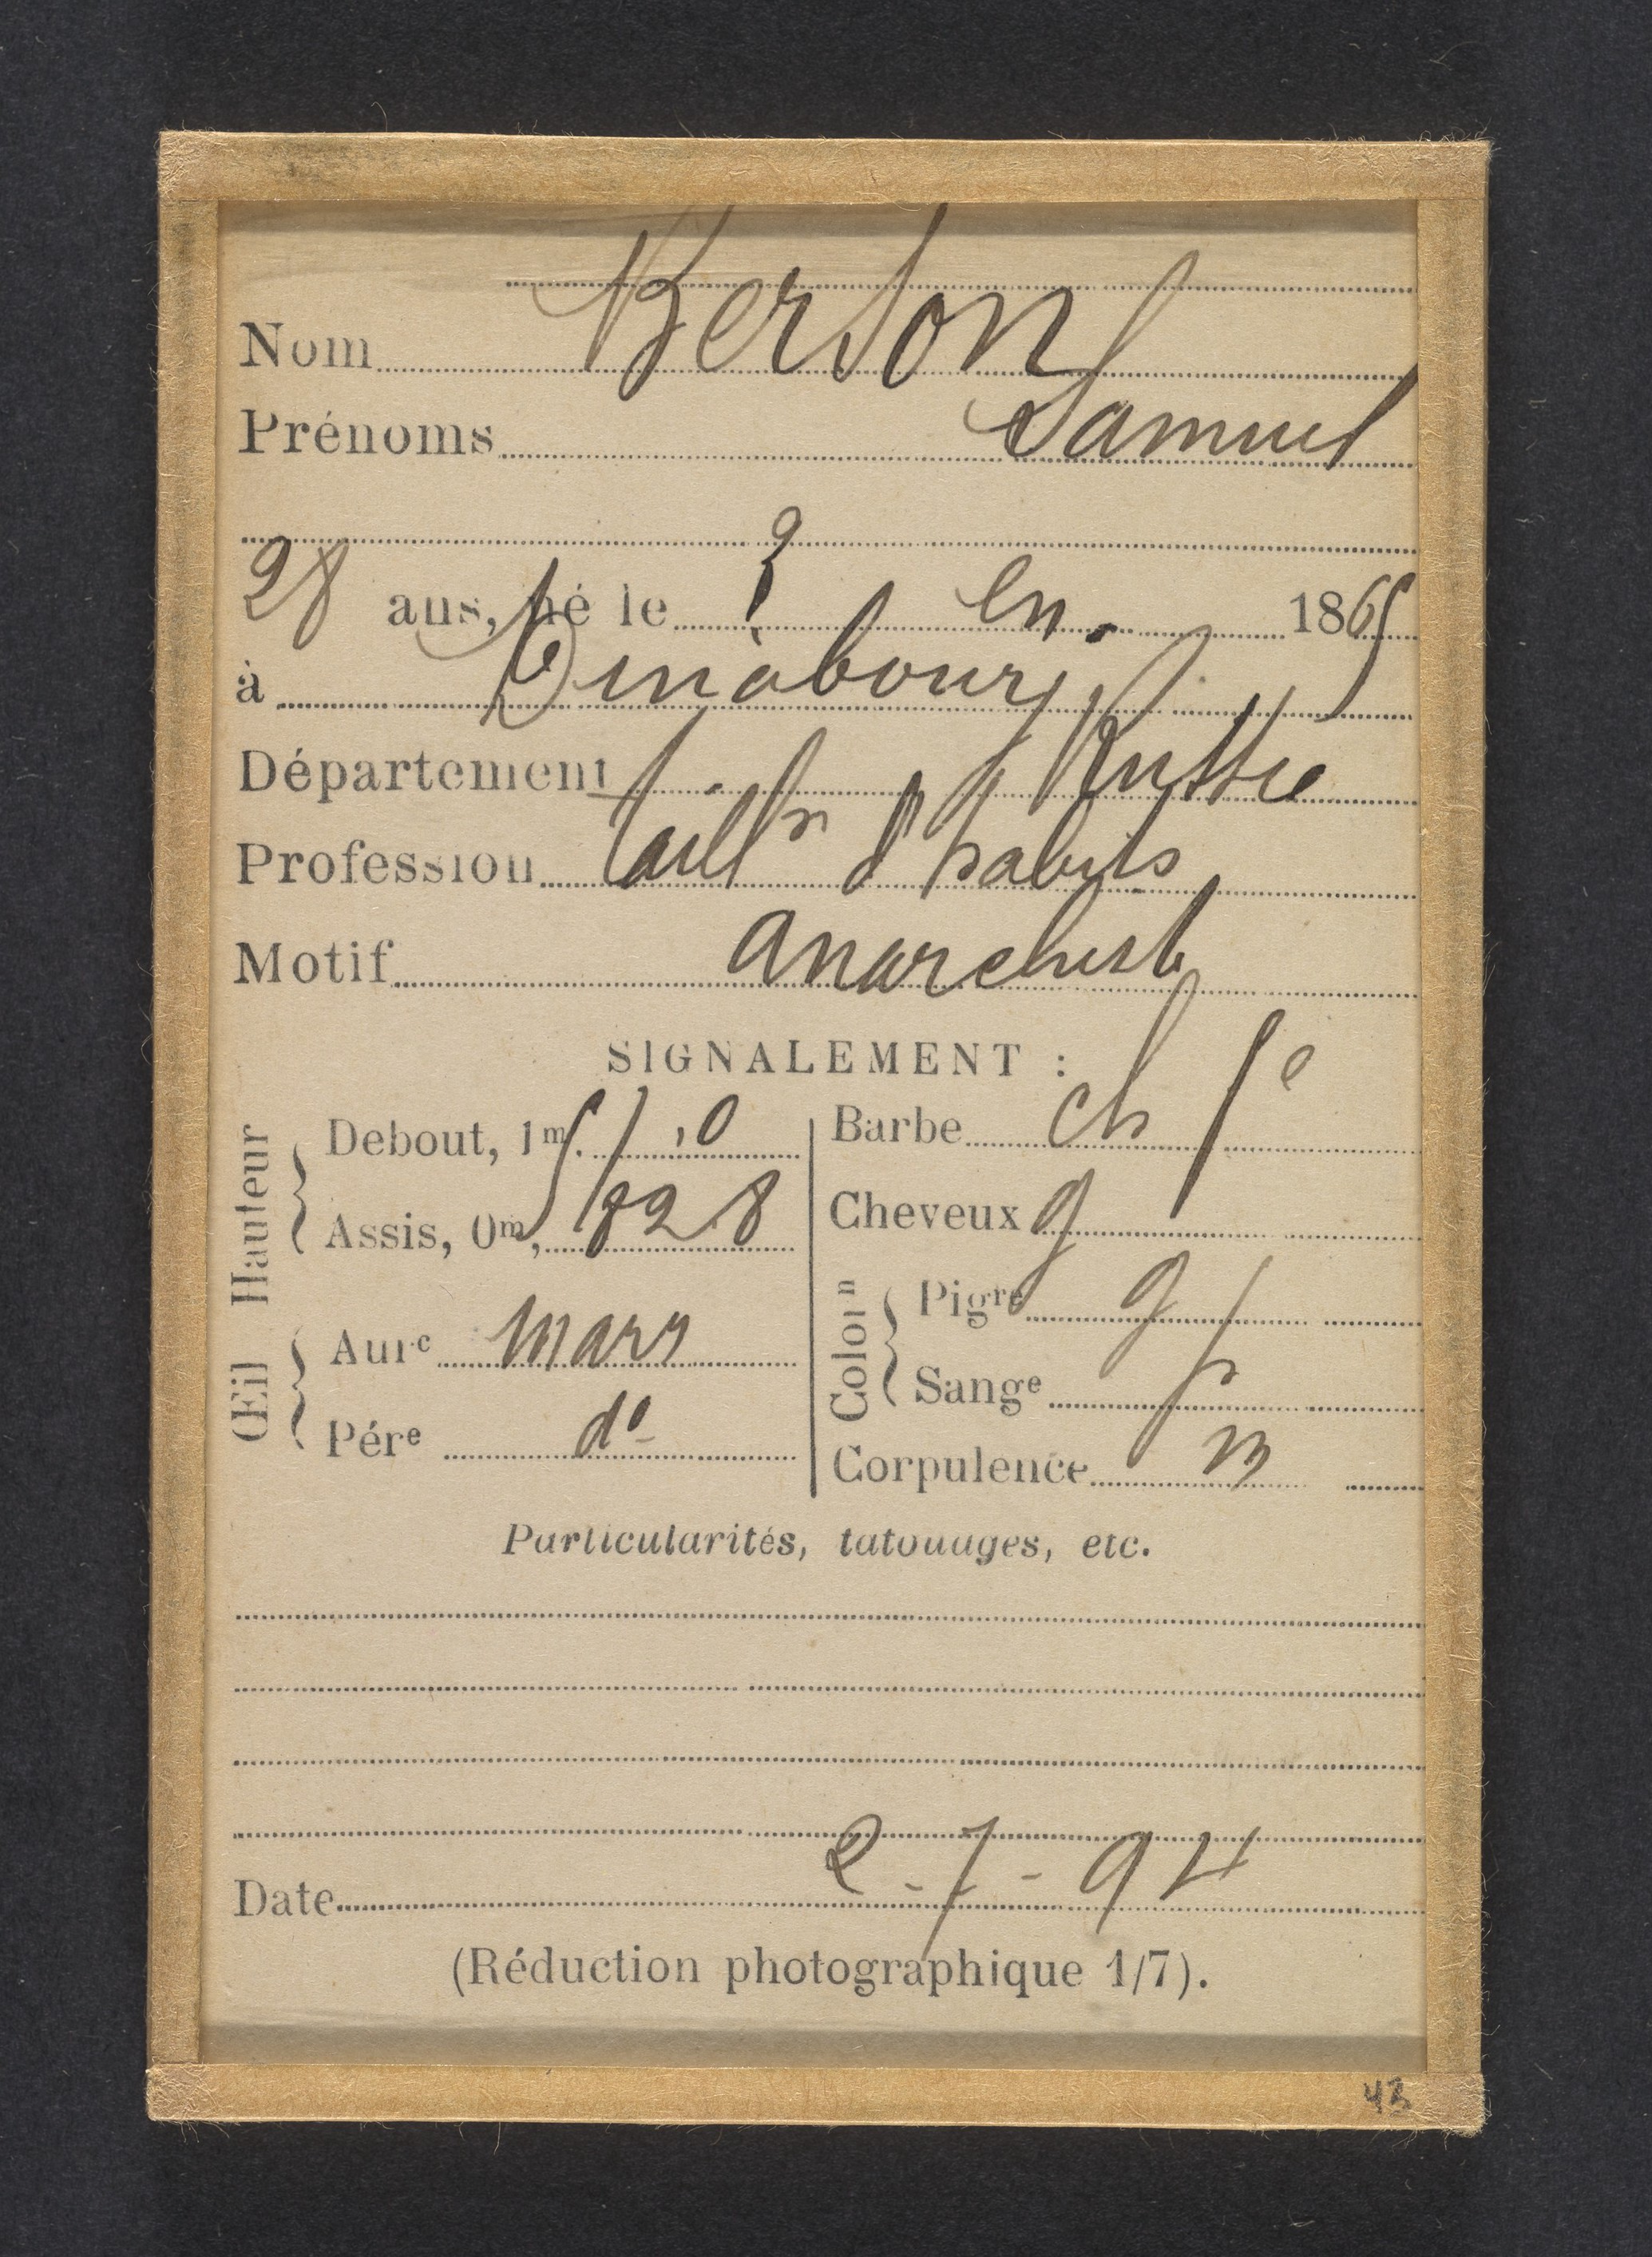 Nom Berson
Prénoms Samuel
28 ans, né le ? en. 1865
à Dinabourg
Département Russie
Profession Taillr d'habits
Motif Anarchiste
SIGNALEMENT :
Hauteur
Debout, 1m
Assis, 0m, 828
Œil
Aurᵉ marr
Pérᵉ dº
Barbe ch fᵉ
Cheveux g
Colorⁿ
Pigʳᵉ g
Sangᵉ p
Corpulence m
Particularités, tatouages, etc.
Date 2-7-94
(Réduction photographique 1/7).
43